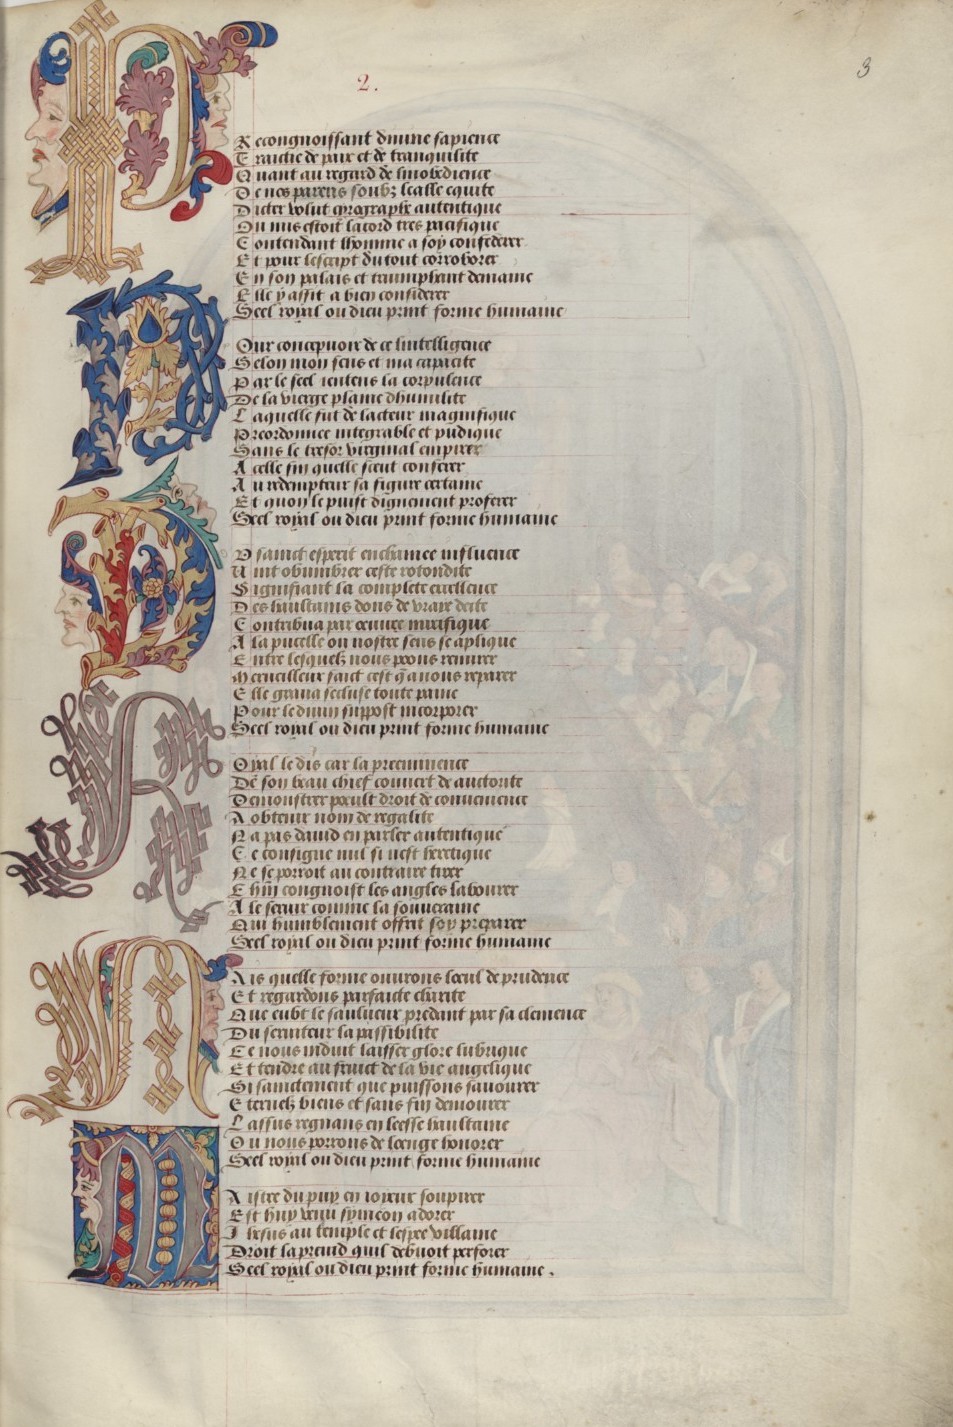 2.
3
Recongnoissant divine sapience
Traictie de paix et de tranquilite
Quant au regard de linobedience
De nos parens soubz lealle equite
Dicter volut cyrographe autentique
Ou mis estoit lacord tres pacifique
Contendant lhomme a soy confederer
Et pour lescript du tout corroborer
En son palais et triumphant demaine
Elle y assit a bien considerer
Seel royal ou dieu print forme humaine
Pour concepuoir de ce lintelligence
Selon mon sens et ma capacite
Par le seel ientens la corpulence
De la vierge plaine dhumilite
Laquelle fut de lacteur magnifique
Preordonnee integrable et pudique
Sans le tresor virginal empirer
A celle fin quelle sceut conferer
Au redempteur sa figure certaine
Et quon le puist dignement proferer
Seel royal ou dieu print forme humaine
D sainct esperit enchainee influence
Uint obumbrer ceste rotondite
Signifiant la complete excellence
Des haultains dons de vraye deite
Contribua par œuure mirifique
A la pucelle ou nostre sens se aplique
Entre lesquelz nous poons remirer
Merueilleux faict cest q̃ a nous reparer
Elle graua secluse toute paine
Pour le diuin suppost incorporer
Seel royal ou dieu print forme humaine
Royal le dis car la preeminence
De son beau chief couuert de auctorite
Demonstrer poeult droit de conuenience
A obtenir nom de regalite
Na pas dauid en parler autentique
Ce consigne nul si nest heretique
Ne se porroit au contraire tirer
Chũn congnoist les angles labourer
A le seruir comme la souueraine
Qui humblement offrit soy preparer
Seel royal ou dieu print forme humaine
Mais quelle forme ouurons lœul de prudence
Et regardons parfaicte clarite
Que eubt le saulueur predant par sa clemence
Du seruiteur la passibilite
Ce nous induit laisser glore lubrique
Et tendre au fruict de la vie angelique
Si sainctement que puissons sauourer
Eternelz biens et sans fin demourer
Lassus regnans en leesse haultaine
Ou nous porrons de loenge honorer
Seel royal ou dieu print forme humaine
Maistre du puy en ioyeux soupirer
Est huy venu symeon adorer
Jhesus au temple et lespee villaine
Droit la preuid quil debuoit perforer
Seel royal ou dieu print forme humaine.